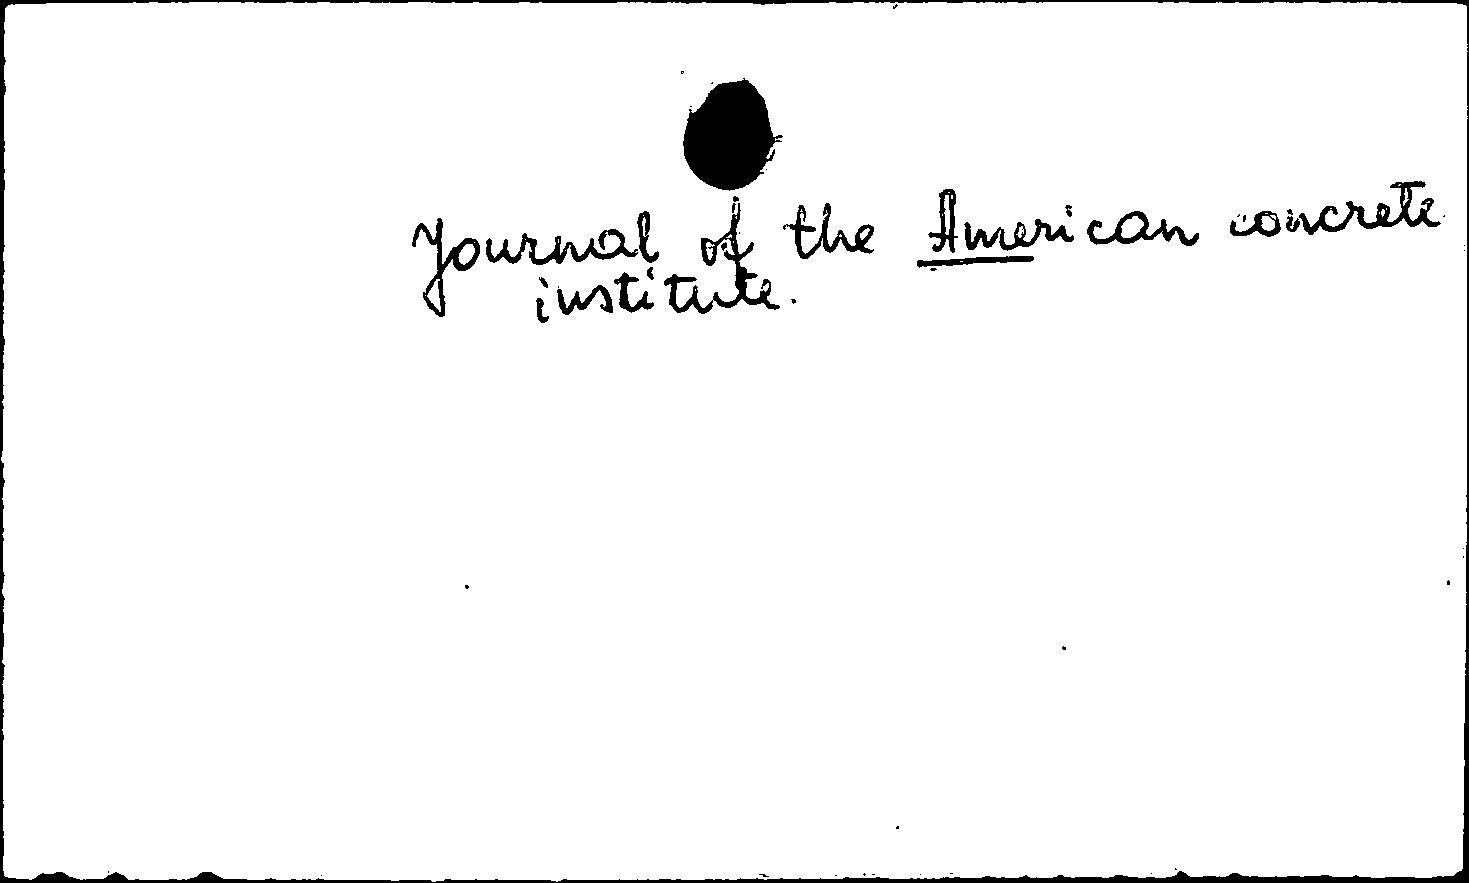 Journal of the American concrete
institute.